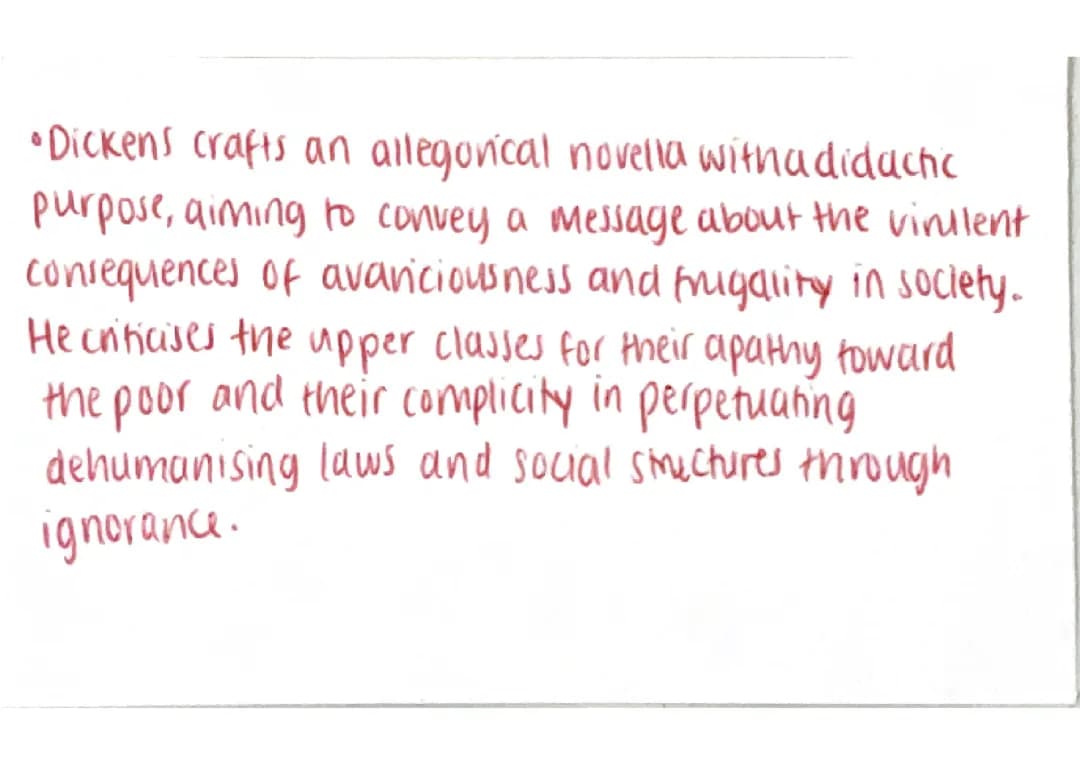 •Dickens crafts an allegorical novella with a didactic
purpose, aiming to convey a message about the virulent
consequences of avariciousness and frugality in society.
He criticises the upper classes for their apathy toward
the poor and their complicity in perpetuating
dehumanising laws and social structures through
ignorance.